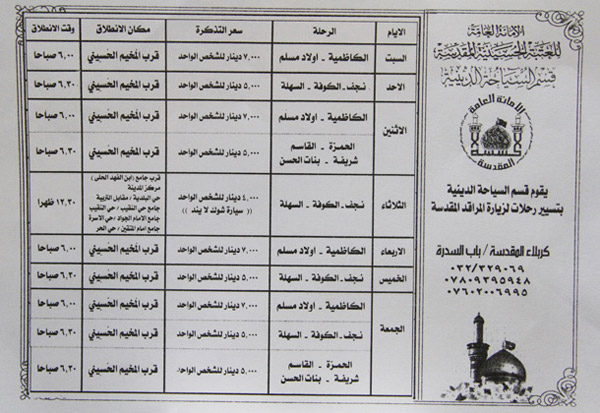 الامانة العامة
للعتبة الحسينية المقدسة
قسم السياحة الدينية
الامانة العامة
المقدسة
يقوم قسم السياحة الدينية
بتسيير رحلات لزيارة المراقد المقدسة
كربلاء المقدسة / باب السدرة
٠٣٢/٣٢٩٠٦٩
٠٧٨٠٩٣٩٥٩٤٨
٠٧٦٠٢٠٠٦٩٩٥
الايام الرحلة سعر التذكرة مكان الانطلاق وقت الانطلاق
السبت الكاظمية - اولاد مسلم ٧,٠٠٠ دينار للشخص الواحد قرب المخيم الحسيني ٦,٠٠ صباحا
الاحد نجف - الكوفة - السهلة ٥,٠٠٠ دينار للشخص الواحد قرب المخيم الحسيني ٦,٣٠ صباحا
الاثنين الكاظمية - اولاد مسلم ٧,٠٠٠ دينار للشخص الواحد قرب المخيم الحسيني ٦,٠٠ صباحا
الحمزة - القاسم
شريفة - بنات الحسن ٥,٠٠٠ دينار للشخص الواحد قرب المخيم الحسيني ٦,٣٠ صباحا
الثلاثاء نجف - الكوفة - السهلة ٤,٠٠٠ دينار للشخص الواحد
(( سيارة شوك لا يند ))
قرب جامع (ابن الفهد الحلي) /
مركز المدينة
حي البلدية / مقابل التربية
جامع النقيب / حي النقيب
جامع الامام الجواد / حي الاسرة
جامع امام المتقين / حي الحر
١٢,٣٠ ظهرا
الاربعاء الكاظمية - اولاد مسلم ٧,٠٠٠ دينار للشخص الواحد قرب المخيم الحسيني ٦,٠٠ صباحا
الخميس نجف - الكوفة - السهلة ٥,٠٠٠ دينار للشخص الواحد قرب المخيم الحسيني ٦,٣٠ صباحا
الجمعة الكاظمية - اولاد مسلم ٧,٠٠٠ دينار للشخص الواحد قرب المخيم الحسيني ٦,٠٠ صباحا
نجف - الكوفة - السهلة ٥,٠٠٠ دينار للشخص الواحد قرب المخيم الحسيني ٦,٣٠ صباحا
الحمزة - القاسم
شريفة - بنات الحسن ٥,٠٠٠ دينار للشخص الواحد قرب المخيم الحسيني ٦,٣٠ صباحا